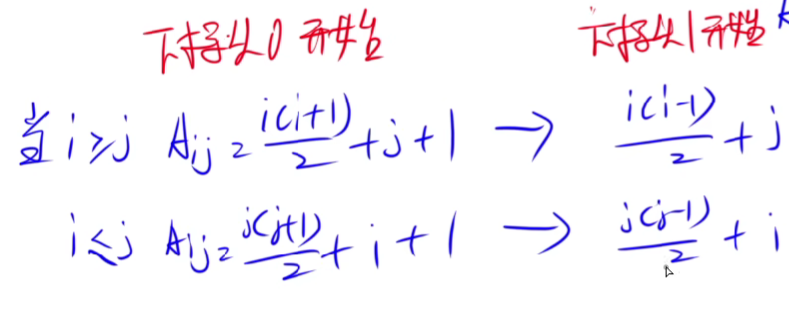 下标从0开始 下标从1开始
当i≥j A_ij = i(i+1)/2 + j + 1 → i(i-1)/2 + j
i≤j A_ij = j(j+1)/2 + i + 1 → j(j-1)/2 + i